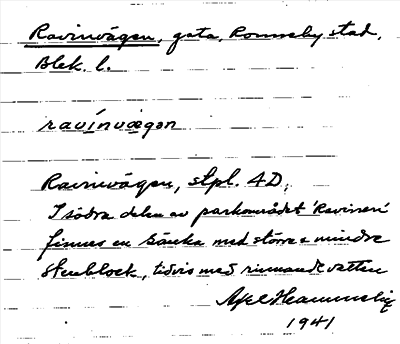 Ravinvägen, gata, Ronneby stad,
Blek. l.
ravínvægən
Ravinvägen, stpl. 4D.
I södra delen av parkområdet 'Ravinen'
finnes en sänka med större o mindre
stenblock, tidvis med rinnande vatten
Axel
1941